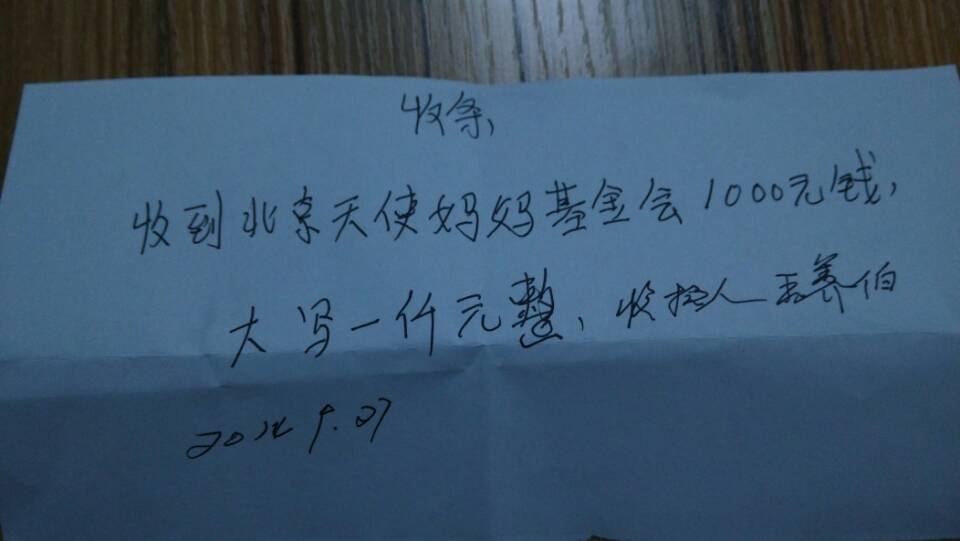 收条,
收到北京天使妈妈基金会1000元钱,
大写一仟元整,收据人 王养伯
2014 9.27